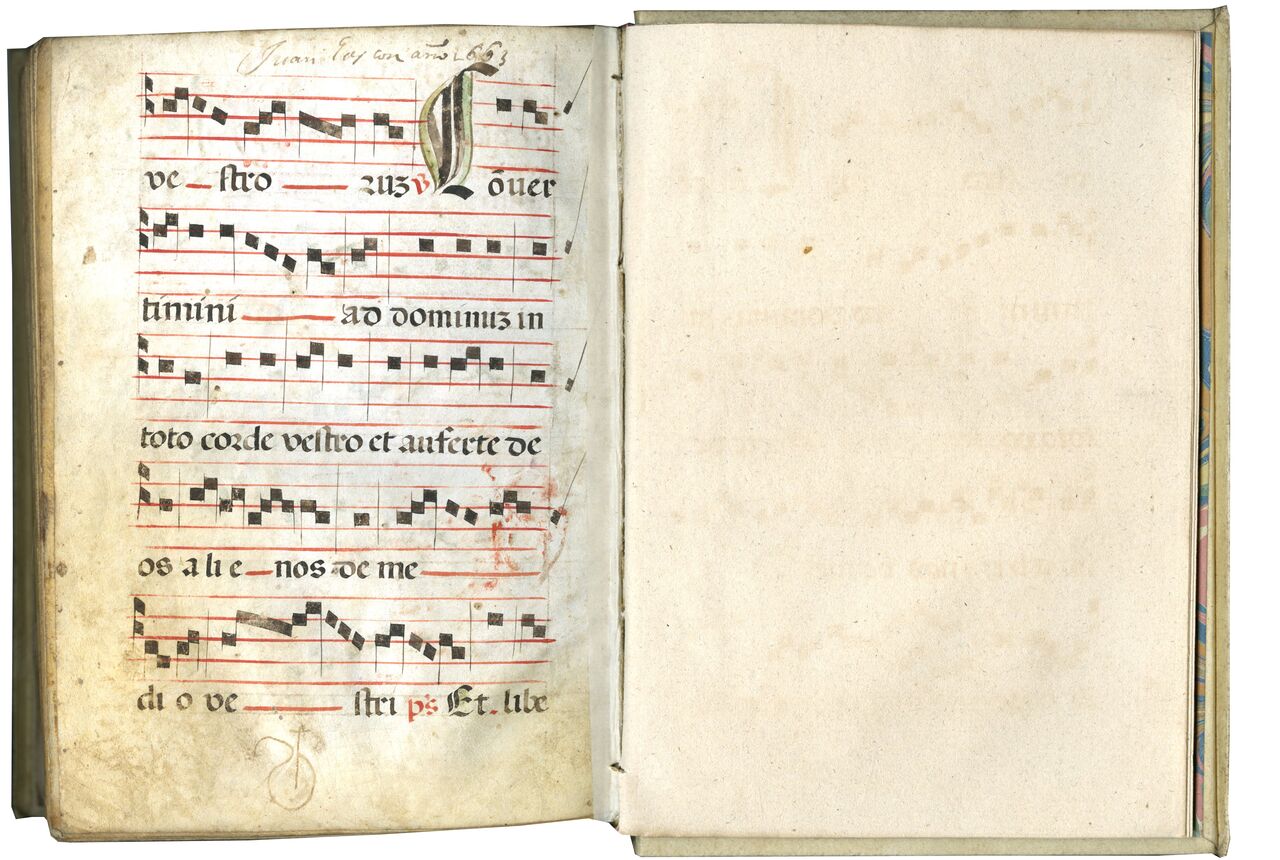 Juan año 1663
ve stro ruz ꝟ Cõuer
timini ad dominuz in
toto corde vestro et auferte de
os alie nos de me
di o ve stri ps Et. libe